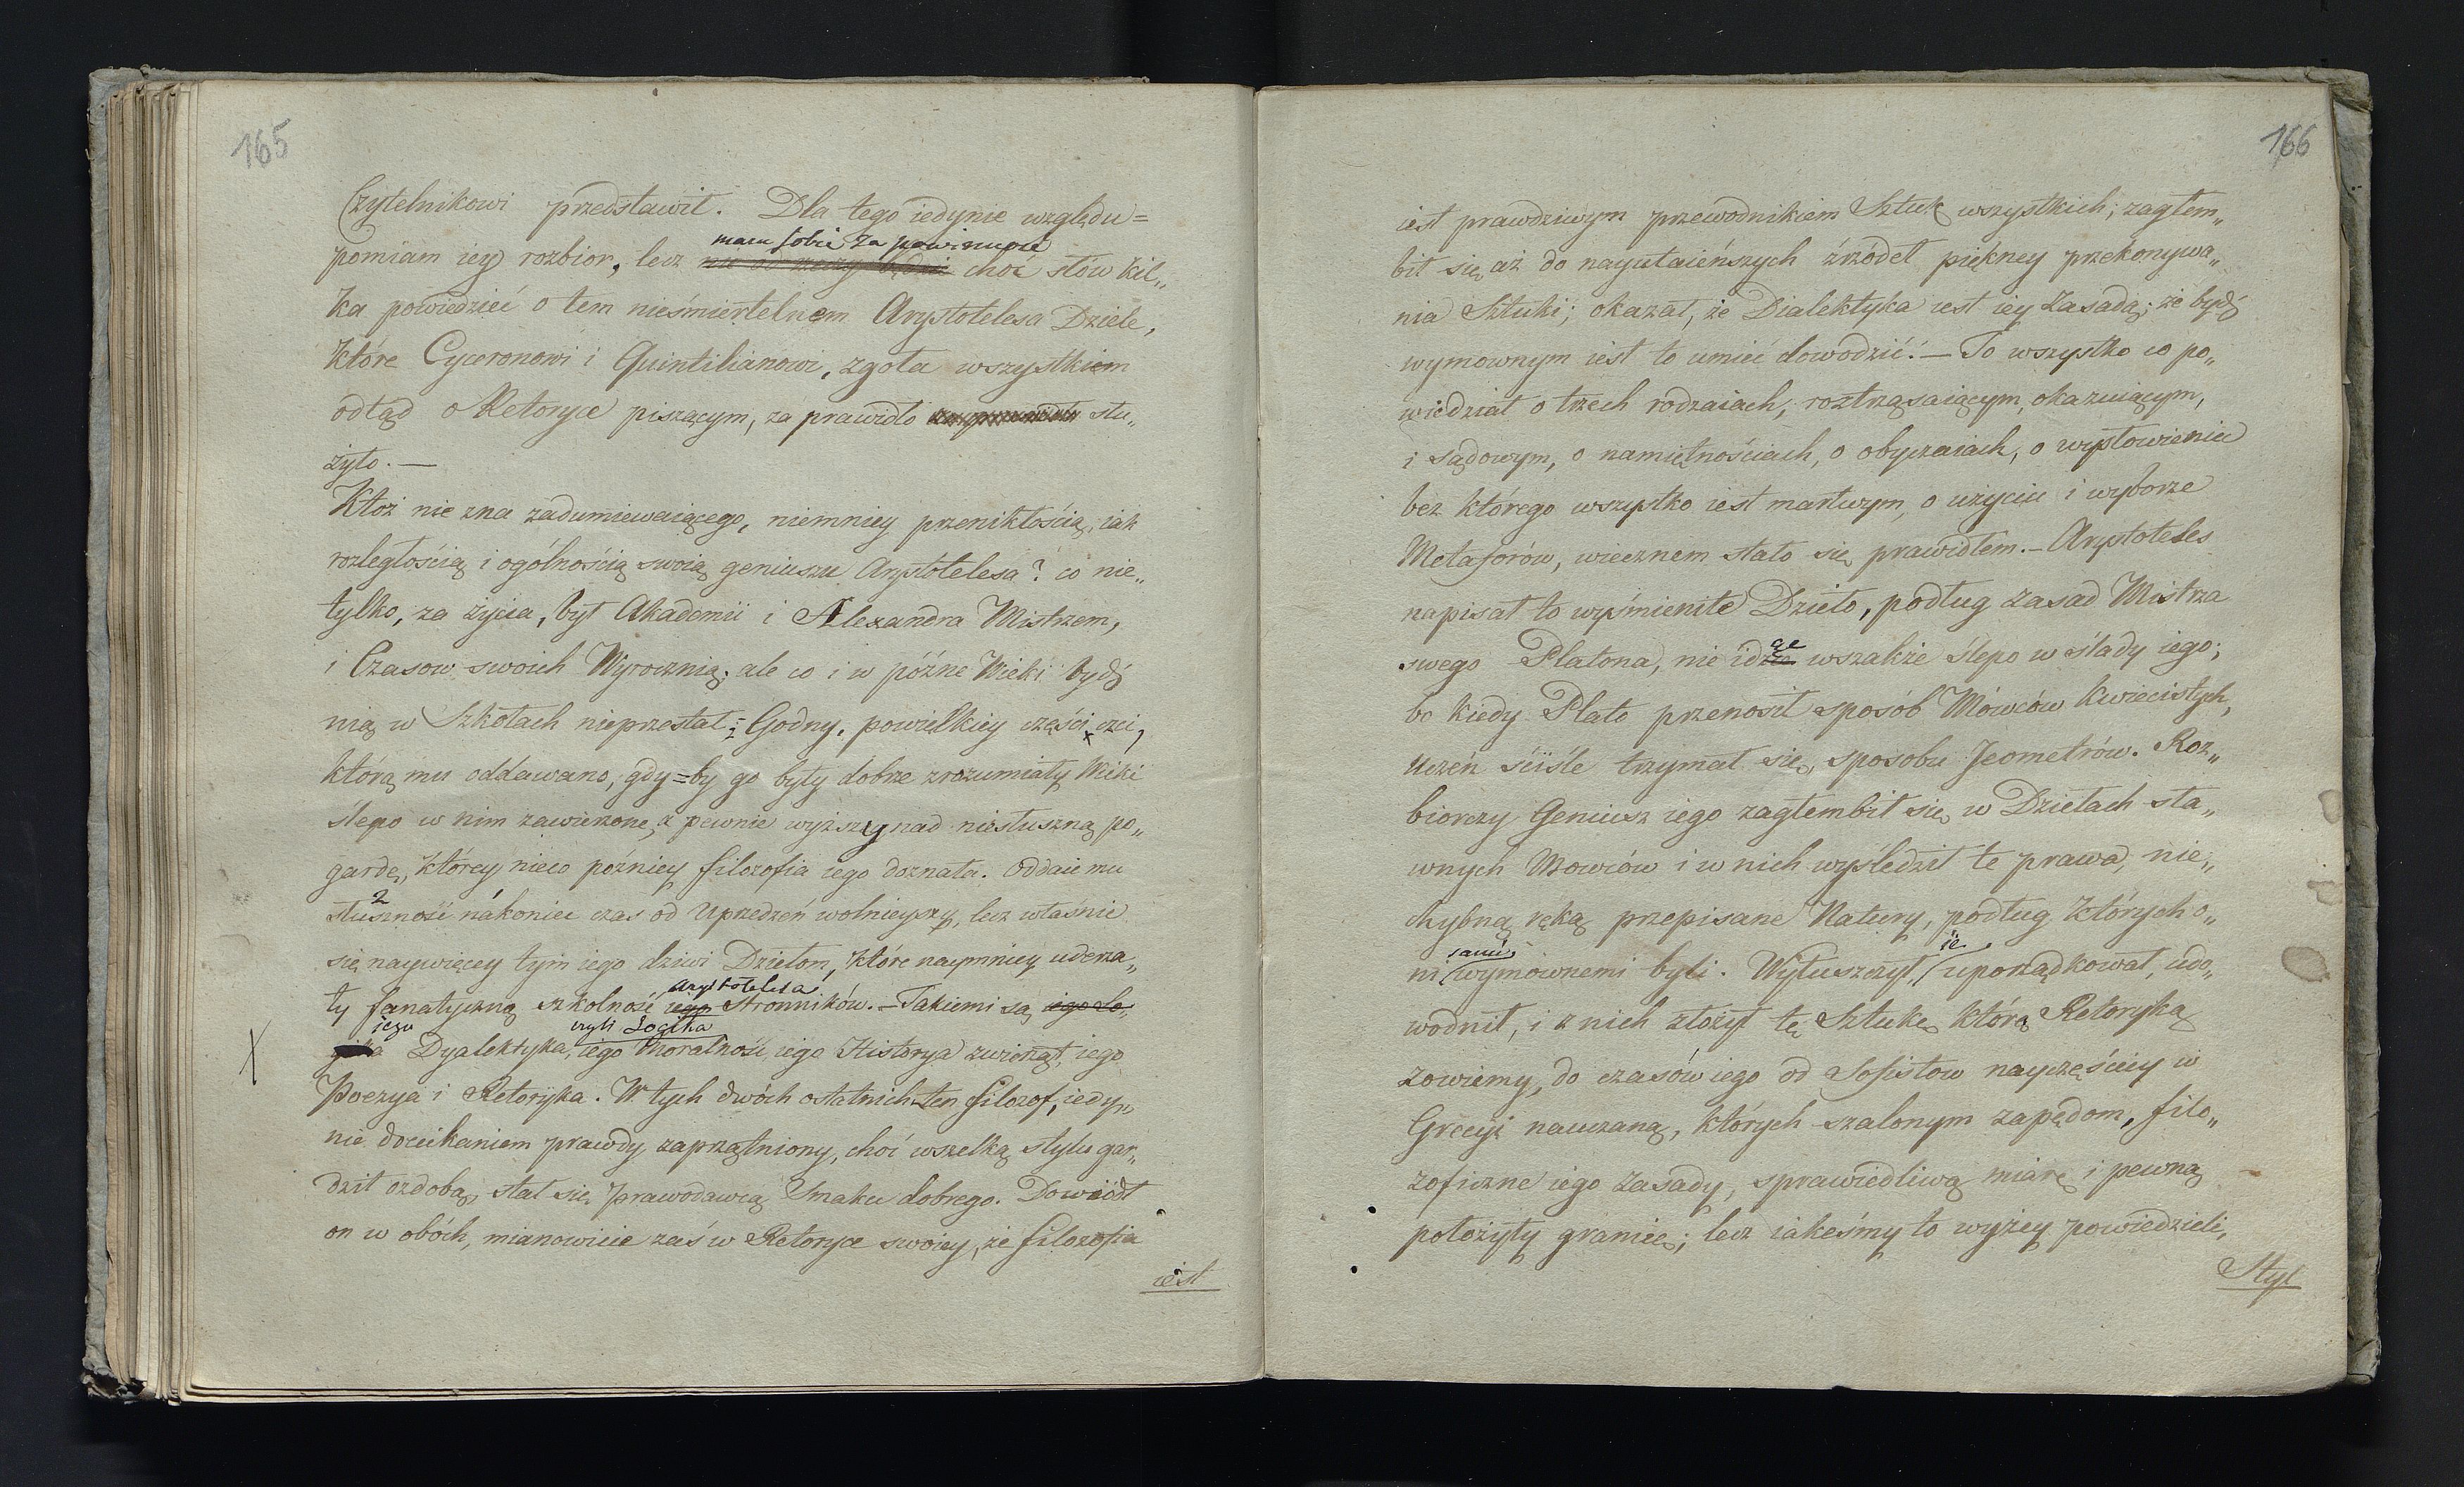 165
Czytelnikowi przedstawił. Dla tego iedynie względu=
mam sobie za powinność
pomiam iey rozbior, lecz choć słów kil„
ka powiedzieć o tem nieśmiertelnem Arystotelesa Dziele,
które Cyceronowi i Quintilianowi, zgoła wszystkiem
odtąd o Retoryce piszącym, za prawidło słu„
żyło. —
Ktoż nie zna zadumiewaiącego, niemniey przenikłością, iak
rozległością i ogólnością swoią geniuszu Arystotelesa? co nie„
tylko, za życia, był Akademii i Alexandra Mistrzem,
i Czasow swoich Wyrocznią; ale co i w późne Wieki bydź
nią w Szkołach nieprzestał: Godny, powielkiey części czci,
którą mu oddawano, gdy=by go były dobrze zrozumiały Wieki
ślepo w nim zawierzone, a pewnie wyższy nad niesłuszną po„
gardę, którey nieco poźniey filozofia iego doznała. Oddaie mu
słuszność nakoniec czas od uprzedzeń wolnieyszy, lecz właśnie
się naywięcey tym iego dziwi Dziełom, które naymniey uderza„
Arystotelesa
ły fanatyczną szkolność iego Stronników. – Takiemi są iego Lo„
jego czyli Logika
gika Dyalektyka, iego Moralność, iego Historya zwierząt, iego
Poezya i Retoryka. W tych dwóch ostatnich ten filozof, iedy„
nie dociekaniem prawdy zaprzątniony, choć wszelką stylu gar„
dził ozdobą, stał się prawodawcą Smaku dobrego. Dowiódł
on w obóch, mianowicie zaś w Retoryce swoiey, że filozofia
iest
166
iest prawdziwym przewodnikiem Sztuk wszystkich; zagłem„
bił się aż do nayutaieńszych źrzódeł piękney przekonywa„
nia Sztuki; okazał, że Dialektyka iest iey Zasadą; że bydź
wymownym iest to umieć dowodzić. — To wszystko co po„
wiedział o trzech rodzaiach, roztrząsaiącym, okazuiącym,
i sądowym, o namiętnościach, o obyczaiach, o wysłowieniu
bez którego wszystko iest martwym, o użyciu i wyborze
Metaforów, wiecznem stało się prawidłem. – Arystoteles
napisał to wyśmienite Dzieło, podług zasad Mistrza
ąc
swego Platona, nie idzie wszakże ślepo w ślady iego;
bo kiedy Plato przenosił sposób Mówców kwiecistych,
Uczeń ściśle trzymał się, sposobu Jeometrów. Roz„
biorczy Geniusz iego zagłembił się w Dziełach sła„
wnych Mowców i w nich wyśledził te prawa, nie„
chybną ręką przepisane Natury, podług których o„
sami ie
ni wymownemi byli. Wyłuszczył, uporządkował, udo„
wodnił, i z nich złożył tę Sztukę, którą Retoryką
zowiemy, do czasów iego od Sofistow nayczęściey w
Grecyi nauczaną, których szalonym zapędom, filo„
zoficzne iego zasady, sprawiedliwą miarę i pewną
położyły granicę; lecz iakeśmy to wyżey powiedzieli,
Styl